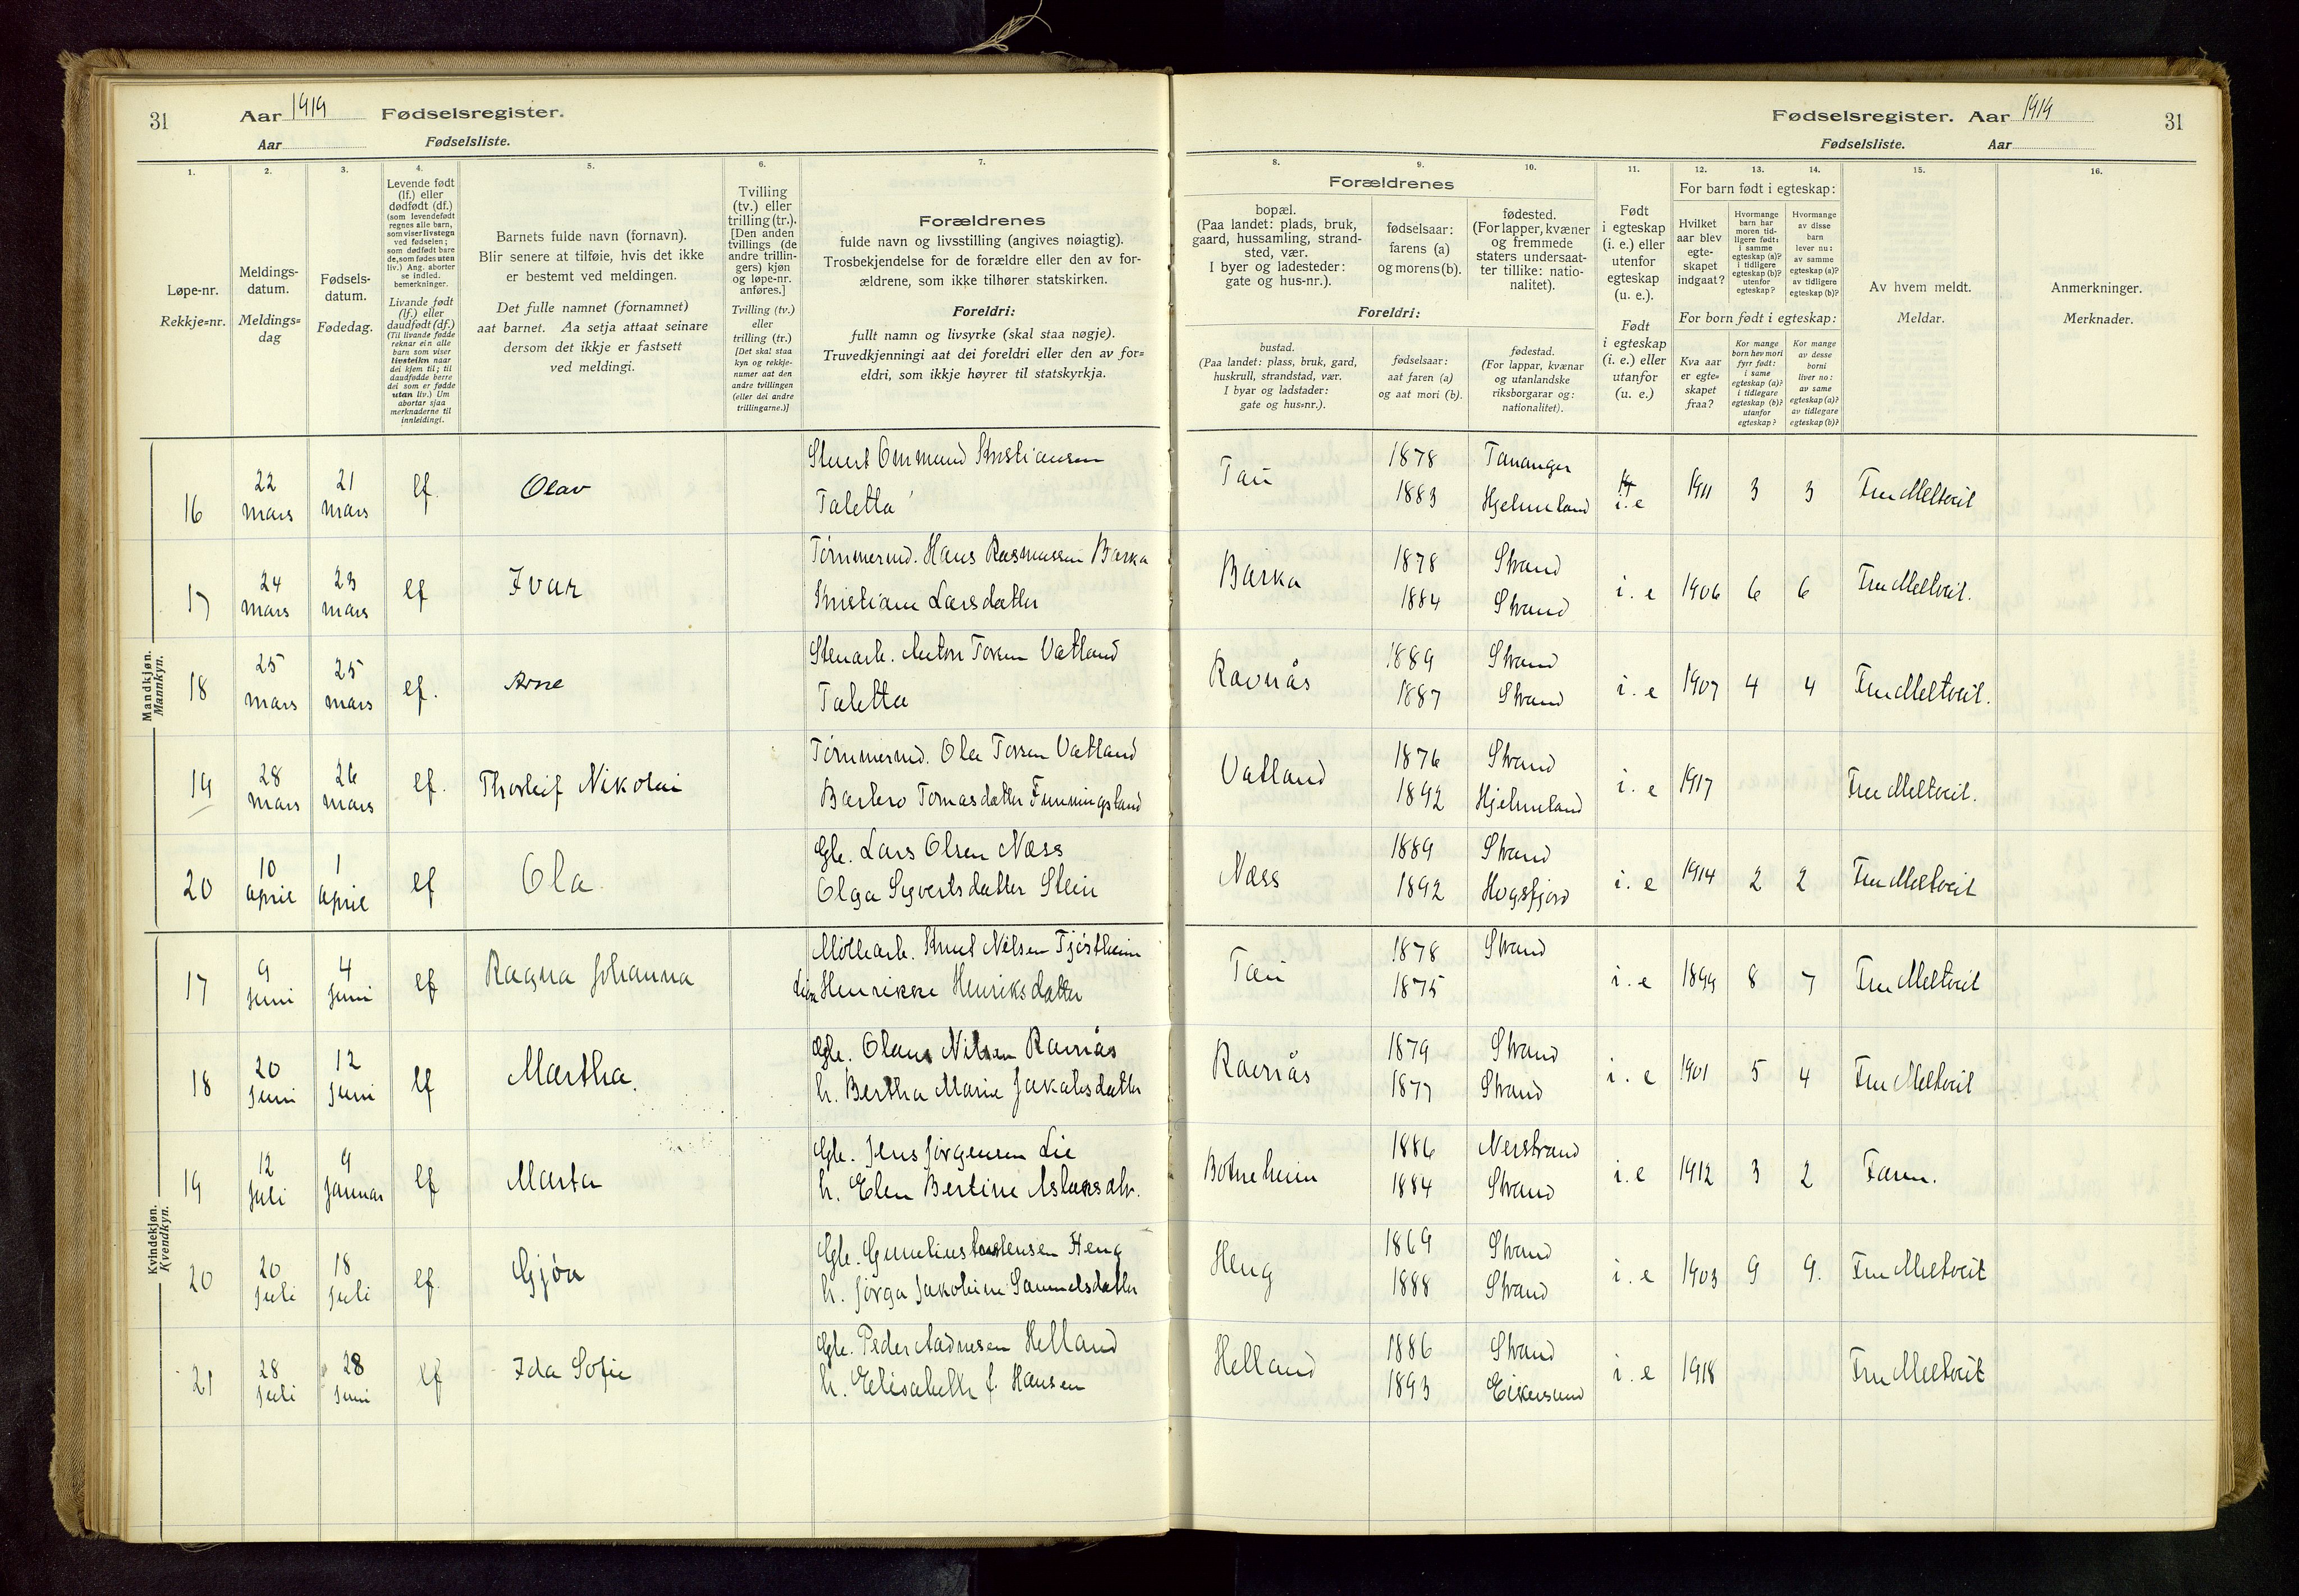 31 Aar 1919 Fødselsregister.
Aar Fødselsliste.
1. 2. 3. 4. 5. 6. 7.
Løpe-nr.
Rekkje=nr.
Meldings-
datum.
Meldings=
dag
Fødsels-
datum.
Fødedag.
Levende født
(lf.) eller
dødfødt (df.)
(som levendefødt
regnes alle barn,
som viser livstegn
ved fødselen;
som dødfødt bare
de, som fødes uten
liv.) Ang. aborter
se indled.
bemerkninger.
Livande født
(lf.) eller
daudfødt (df.)
(Til livande fødde
reknar ein alle
barn som viser
livsteikn naar
dei kjem til; til
daudfødde berre
dei som er fødde
utan liv.) Um
abortar sjaa
merknaderne til
innleidingi.
Barnets fulde navn (fornavn).
Blir senere at tilføie, hvis det ikke
er bestemt ved meldingen.
Det fulle namnet (fornamnet)
aat barnet. Aa setja attaat seinare
dersom det ikkje er fastsett
ved meldingi.
Tvilling
(tv.) eller
trilling (tr.).
[Den anden
tvillings (de
andre trillin-
gers) kjøn
og løpe-nr.
anføres.]
Tvilling (tv.)
eller
trilling (tr.)
[Det skal staa
kyn og rekkje-
numer aat den
andre tvillingen
(eller dei andre
trillingarne.)]
Forældrenes
fulde navn og livsstilling (angives nøiagtig).
Trosbekjendelse for de forældre eller den av for-
ældrene, som ikke tilhører statskirken.
Foreldri:
fullt namn og livsyrke (skal staa nøgje).
Truvedkjenningi aat dei foreldri eller den av for=
eldri, som ikkje høyrer til statskyrkja.
Mandkjøn.
Mannkyn.
16 22 mars 21 mars lf. Olav
Ommund Kristiansen
Taletta
17 24 mars 23 mars lf Ivar
Tømmermd. Hans Rasmussen Barka
Kristiane Larsdatter
18 25 mars 25 mars lf. Arne
Stenarb. Anton Torsen Vatland
Taletta
19 28 mars 26 mars lf. Thorleif Nikolai
Tømmermd. Ola Torsen Vatland
Barbro Tomasdatter Funningsland
20 10 april 1 april lf Ola.
Gbr. Lars Olsen Næss
Olga Syvertsdatter Stein
Kvindekjøn.
Kvendkyn.
17 9 juni 4 juni lf Ragna Johanna
Møllearb. Knut Nilsen Tjøstheim
Henrikke Henriksdatter
18 20 juni 12 juni lf Martha.
Gbr. Olaus Nilsen Ravnås
h. Bertha Marie Jakobsdatter
19 12 juli 9 januar lf Marta
Gbr. Jens Jørgensen Lie
h. Elen Bertine Aslaksdtr.
20 20 juli 18 juli lf. Gjøa
Gbr. Heng
h. Jørga Jakobine Samuelsdatter
21 28 juli 28 juni lf Ida Sofie
Gbr. Peder Aadnesen Helland
h. Elisabeth f. Hansen
Fødselsregister. Aar 1919 31
Fødselsliste. Aar
8. 9. 10. 11. 12. 13. 14. 15. 16.
Forældrenes
bopæl.
(Paa landet: plads, bruk,
gaard, hussamling, strand-
sted, vær.
I byer og ladesteder:
gate og hus-nr.).
fødselsaar:
farens (a)
og morens (b).
fødested.
(For lapper, kvæner
og fremmede
staters undersaat-
ter tillike: natio-
nalitet).
Foreldri:
bustad.
(Paa landet: plass, bruk, gard,
huskrull, strandstad, vær.
I byar og ladstader:
gate og hus=nr.).
fødselsaar:
aat faren (a)
og aat mori (b).
fødestad.
(For lappar, kvænar
og utanlandske
riksborgarar og:
nationalitet).
Født
i egteskap
(i. e.) eller
utenfor
egteskap
(u. e.).
Født
i egteskap
(i. e.) eller
utanfor
(u. e.)
For barn født i egteskap:
Hvilket
aar blev
egte-
skapet
indgaat?
Hvormange
barn har
moren tid-
ligere født:
i samme
egteskap (a)?
i tidligere
egteskap (b)?
utenfor
egteskap?
Hvormange
av disse
barn
lever nu:
av samme
egteskap (a)?
av tidligere
egteskap (b)?
For born født i egteskap:
Kva aar
er egte=
skapet
fraa?
Kor mange
born hev mori
fyrr født:
i same
egteskap (a)?
i tidlegare
egteskap (b)?
utanfor
egteskap?
Kor mange
av desse
borni
liver no:
av same
egteskap (a)?
av tidlegare
egteskap (b)?
Av hvem meldt.
Meldar.
Anmerkninger.
Merknader.
Tau 1878 Tananger
1883 Hjelmeland i. e 1911 3 3 Fru Meltveit
Barka 1878 Strand
1884 Strand i. e 1906 6 6 Fru Meltveit.
Ravnås 1889 Strand
1887 Strand i. e 1907 4 4 Fru Meltveit.
Vatland 1876 Strand
1892 Hjelmeland i. e 1917 Fru Meltveit.
Næss 1889 Strand
1892 Høgsfjord i. e 1914 2 2 Fru Meltveit
Tau 1878 Strand
1875 i. e 1899 8 7 Fru Meltveit
Ravnås 1879 Strand
1877 Strand i. e 1901 5 4 Fru Meltveit
Botneheim 1886 Nerstrand
1884 Strand i. e 1912 3 2 Faren.
Heng 1869 Strand
1888 Strand i. e 1903 9 9. Fru Meltveit
Helland 1886 Strand
1893 Eikersund i. e 1918 Fru Meltveit